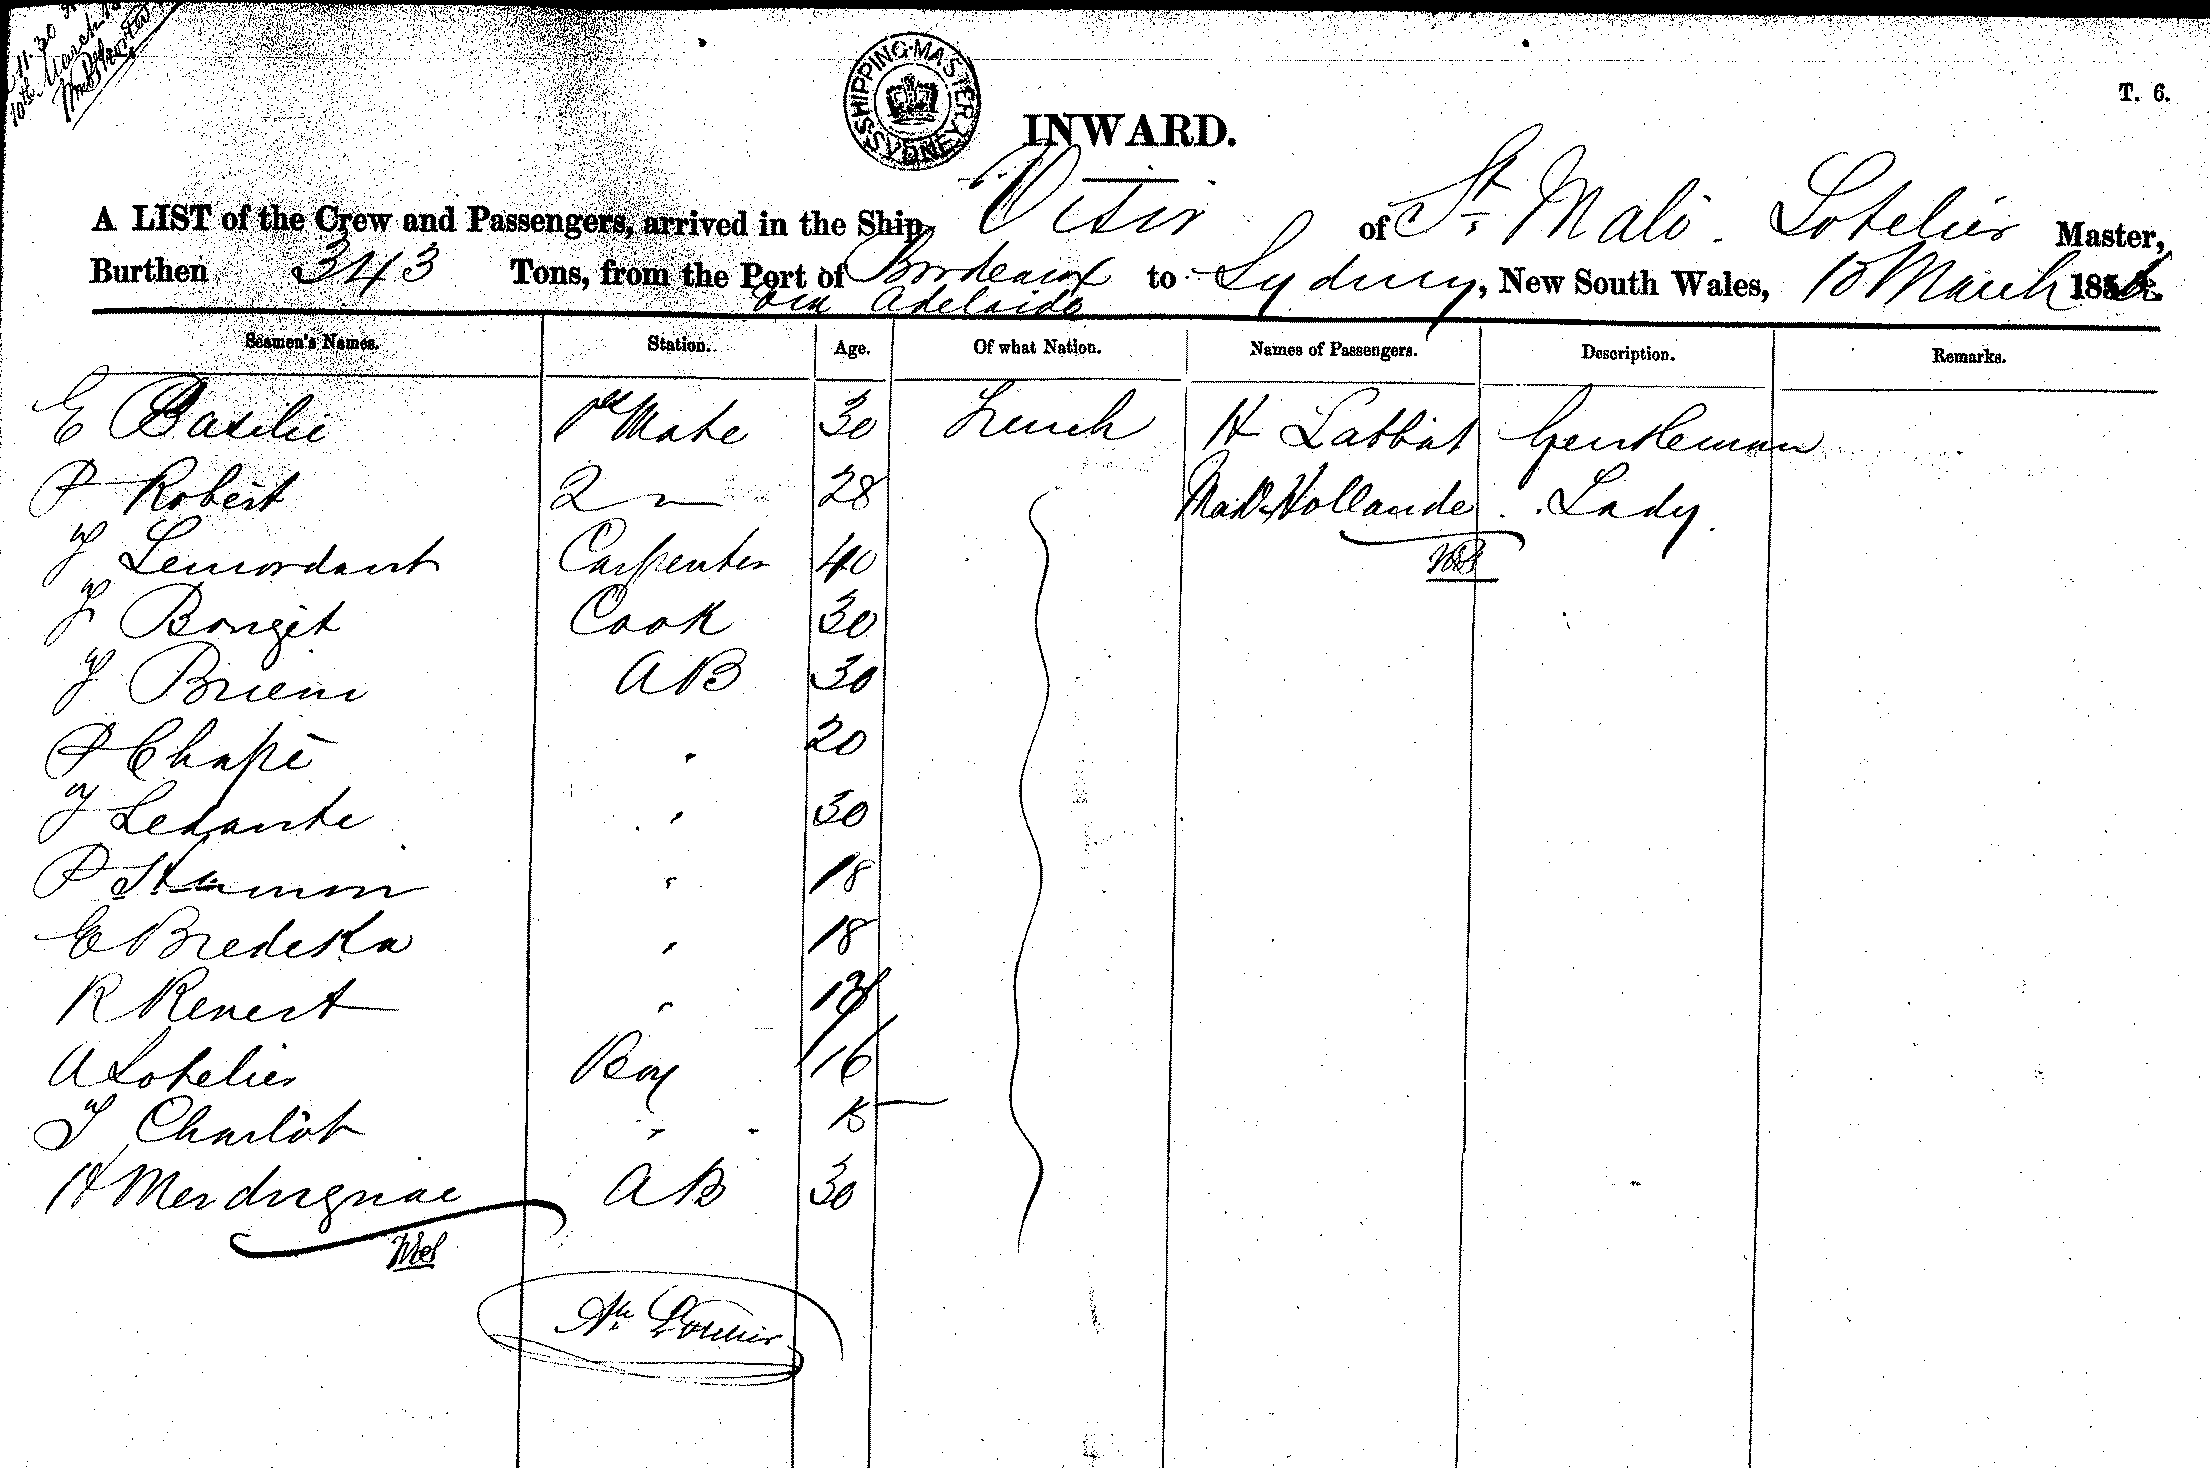 11.30
10th March
SHIPPING MASTER SYDNEY
T. 6.
INWARD.
A LIST of the Crew and Passengers, arrived in the Ship Visir of St. Malo. Lotelier Master,
Burthen 343 Tons, from the Port of Bordeaux to Sydney, New South Wales, 10 March 185
via Adelaide
Seamen's Names. Station. Age. Of what Nation. Names of Passengers. Description. Remarks.
E Basilie 1st Mate 30 French H Labbat Gentleman
P Robert 2 " 28 Mad. Hollande Lady.
J Lemordant Carpenter 40
J Bongit Cook 30
J Briem AB 30
P Chapé " 20
J Ledante " 30
P " 18
E Bredeska " 18
R Revert "
A Lotelier Boy 16
J Charlot " 15
H Merdrignac AB 30